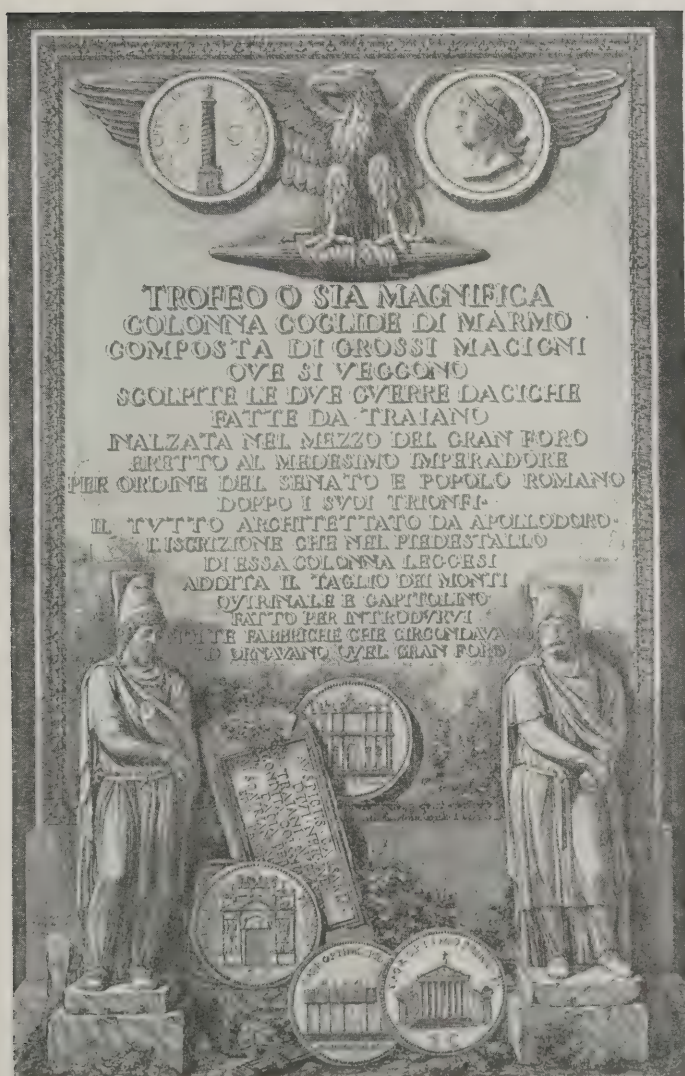 S C
TROFEO O SIA MAGNIFICA
COLONNA COCLIDE DI MARMO
COMPOSTA DI GROSSI MACIGNI
OVE SI VEGGONO
SCOLPITE LE DVE GVERRE DACICHE
FATTE DA TRAIANO
INALZATA NEL MEZZO DEL GRAN FORO
ERETTO AL MEDESIMO IMPERADORE
PER ORDINE DEL SENATO E POPOLO ROMANO
DOPPO I SVOI TRIONFI·
IL TVTTO ARCHITETTATO DA APOLLODORO·
L'ISCRIZIONE CHE NEL PIEDESTALLO
DI ESSA COLONNA LEGGESI
ADDITA IL TAGLIO DEI MONTI
QVIRINALE E CAPITOLINO
FATTO PER INTRODVRVI
FABBRICHE CHE CIRCONDAVANO
QVEL GRAN FORO